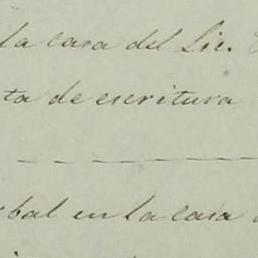 la casa del Lic.
ta de escritura
bal en la casa